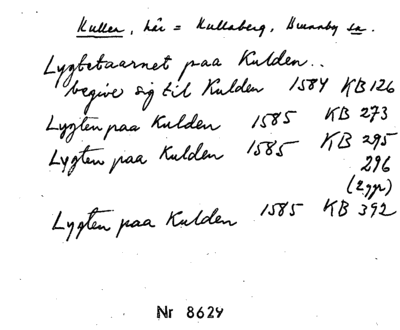 Kullen, här = Kullaberg, Brunnby sn.
Lygbetaarnet paa Kulden..
begive sig til Kulden 1584 KB 126
Lygten paa Kulden 1585 KB 273
Lygten paa Kulden 1585 KB 295
296
(2 ggr)
Lygten paa Kulden 1585 KB 392
Nr 8629